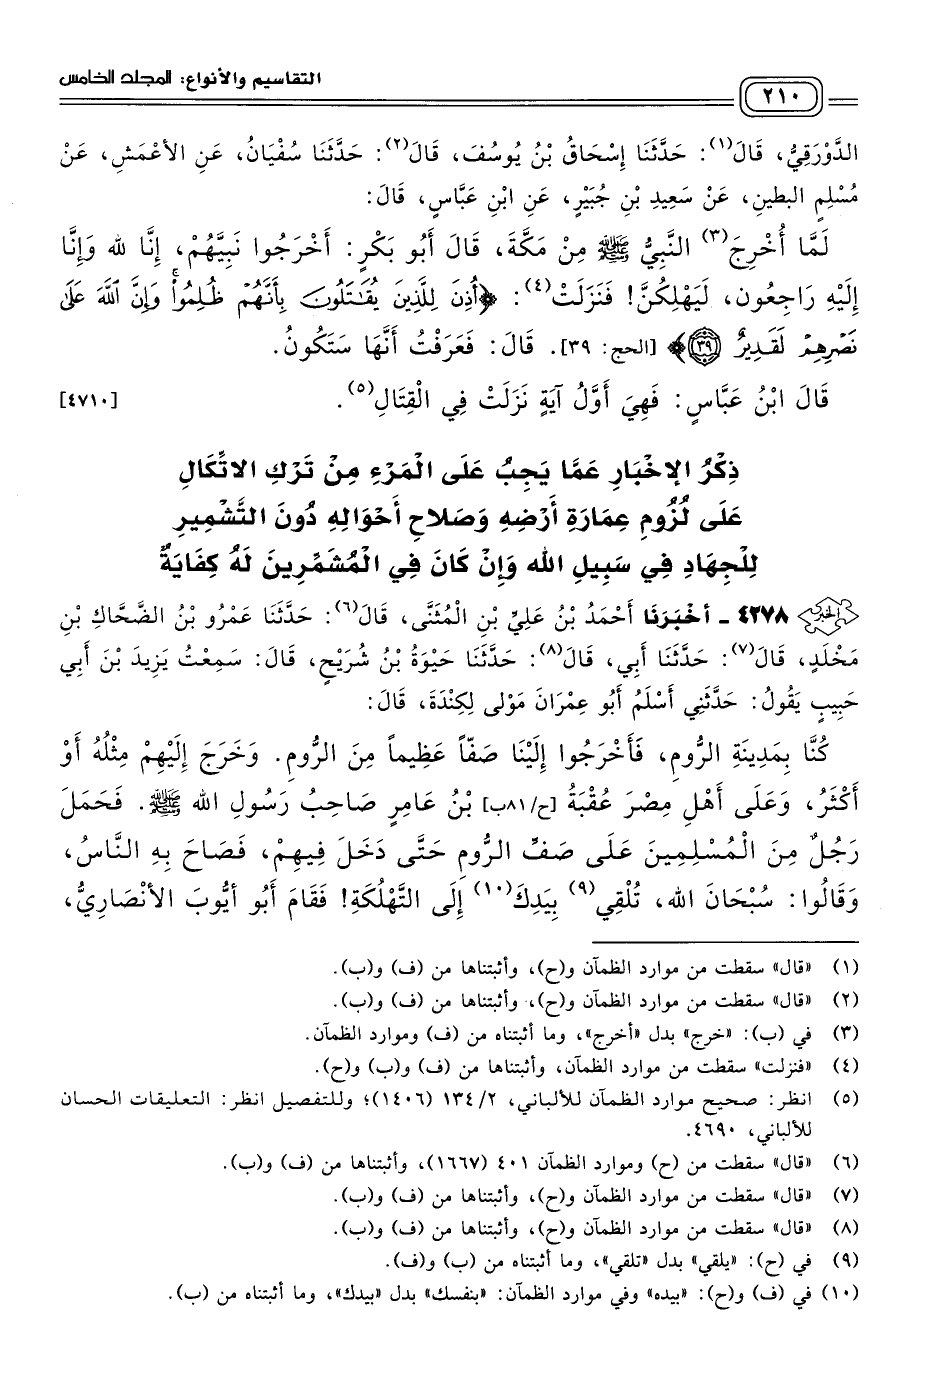 التقاسيم والأنواع: المجلد الخامس
٢١٠
الدَّوْرَقِيُّ، قَالَ(١): حَدَّثَنَا إِسْحَاقُ بْنُ يُوسُفَ، قَالَ(٢): حَدَّثَنَا سُفْيَانُ، عَنِ الأَعْمَشِ، عَنْ
مُسْلِمٍ البطينِ، عَنْ سَعِيدِ بْنِ جُبَيْرٍ، عَنِ ابْنِ عَبَّاسٍ، قَالَ:
لَمَّا أُخْرِجَ(٣) النَّبِيُّ ﷺ مِنْ مَكَّةَ، قَالَ أَبُو بَكْرٍ: أَخْرَجُوا نَبِيَّهُمْ، إِنَّا لله وَإِنَّا
إِلَيْهِ رَاجِعُون، لَيَهْلِكُنَّ! فَنَزَلَتْ(٤): ﴿أُذِنَ لِلَّذِينَ يُقَٰتَلُونَ بِأَنَّهُمْ ظُلِمُواْ وَإِنَّ ٱللَّهَ عَلَىٰ
نَصْرِهِمْ لَقَدِيرٌ ٣٩﴾ [الحج: ٣٩]. قَالَ: فَعَرَفْتُ أَنَّهَا سَتَكُونُ.
قَالَ ابْنُ عَبَّاسٍ: فَهِيَ أَوَّلُ آيَةٍ نَزَلَتْ فِي الْقِتَالِ(٥). [٤٧١٠]
ذِكْرُ الإِخْبَارِ عَمَّا يَجِبُ عَلَى الْمَرْءِ مِنْ تَرْكِ الاتِّكَالِ
عَلَى لُزُومِ عِمَارَةِ أَرْضِهِ وَصَلاحِ أَحْوَالِهِ دُونَ التَّشْمِيرِ
لِلْجِهَادِ فِي سَبِيلِ الله وَإِنْ كَانَ فِي الْمُشَمِّرِينَ لَهُ كِفَايَةٌ
الخبر ٤٢٧٨ - أَخْبَرَنَا أَحْمَدُ بْنُ عَلِيِّ بْنِ الْمُثَنَّى، قَالَ(٦): حَدَّثَنَا عَمْرُو بْنُ الضَّحَّاكِ بْنِ
مَخْلَدٍ، قَالَ(٧): حَدَّثَنَا أَبِي، قَالَ(٨): حَدَّثَنَا حَيْوَةُ بْنُ شُرَيْحٍ، قَالَ: سَمِعْتُ يَزِيدَ بْنَ أَبِي
حَبِيبٍ يَقُولُ: حَدَّثَنِي أَسْلَمُ أَبُو عِمْرَانَ مَوْلى لِكِنْدَةَ، قَالَ:
كُنَّا بِمَدِينَةِ الرُّومِ، فَأَخْرَجُوا إِلَيْنَا صَفّاً عَظِيماً مِنَ الرُّومِ. وَخَرَجَ إِلَيْهِمْ مِثْلُهُ أَوْ
أَكْثَرُ، وَعَلَى أَهْلِ مِصْرَ عُقْبَةُ [ح/٨١ب] بْنُ عَامِرٍ صَاحِبُ رَسُولِ الله ﷺ. فَحَمَلَ
رَجُلٌ مِنَ الْمُسْلِمِينَ عَلَى صَفِّ الرُّومِ حَتَّى دَخَلَ فِيهِمْ، فَصَاحَ بِهِ النَّاسُ،
وَقَالُوا: سُبْحَانَ الله، تُلْقِي(٩) بِيَدِكَ(١٠) إِلَى التَّهْلُكَةِ! فَقَامَ أَبُو أَيُّوبَ الأَنْصَارِيُّ،
(١) «قال» سقطت من موارد الظمآن و(ح)، وأثبتناها من (ف) و(ب).
(٢) «قال» سقطت من موارد الظمآن و(ح)، وأثبتناها من (ف) و(ب).
(٣) في (ب): «خرج» بدل «أخرج»، وما أثبتناه من (ف) وموارد الظمآن.
(٤) «فنزلت» سقطت من موارد الظمآن، وأثبتناها من (ف) و(ب) و(ح).
(٥) انظر: صحيح موارد الظمآن للألباني، ٢/ ١٣٤ (١٤٠٦)؛ وللتفصيل انظر: التعليقات الحسان
للألباني، ٤٦٩٠.
(٦) «قال» سقطت من (ح) وموارد الظمآن ٤٠١ (١٦٦٧)، وأثبتناها من (ف) و(ب).
(٧) «قال» سقطت من موارد الظمآن و(ح)، وأثبتناها من (ف) و(ب).
(٨) «قال» سقطت من موارد الظمآن و(ح)، وأثبتناها من (ف) و(ب).
(٩) في (ح): «يلقي» بدل «تلقي»، وما أثبتناه من (ب) و(ف).
(١٠) في (ف) و(ح): «بيده» وفي موارد الظمآن: «بنفسك» بدل «بيدك»، وما أثبتناه من (ب).